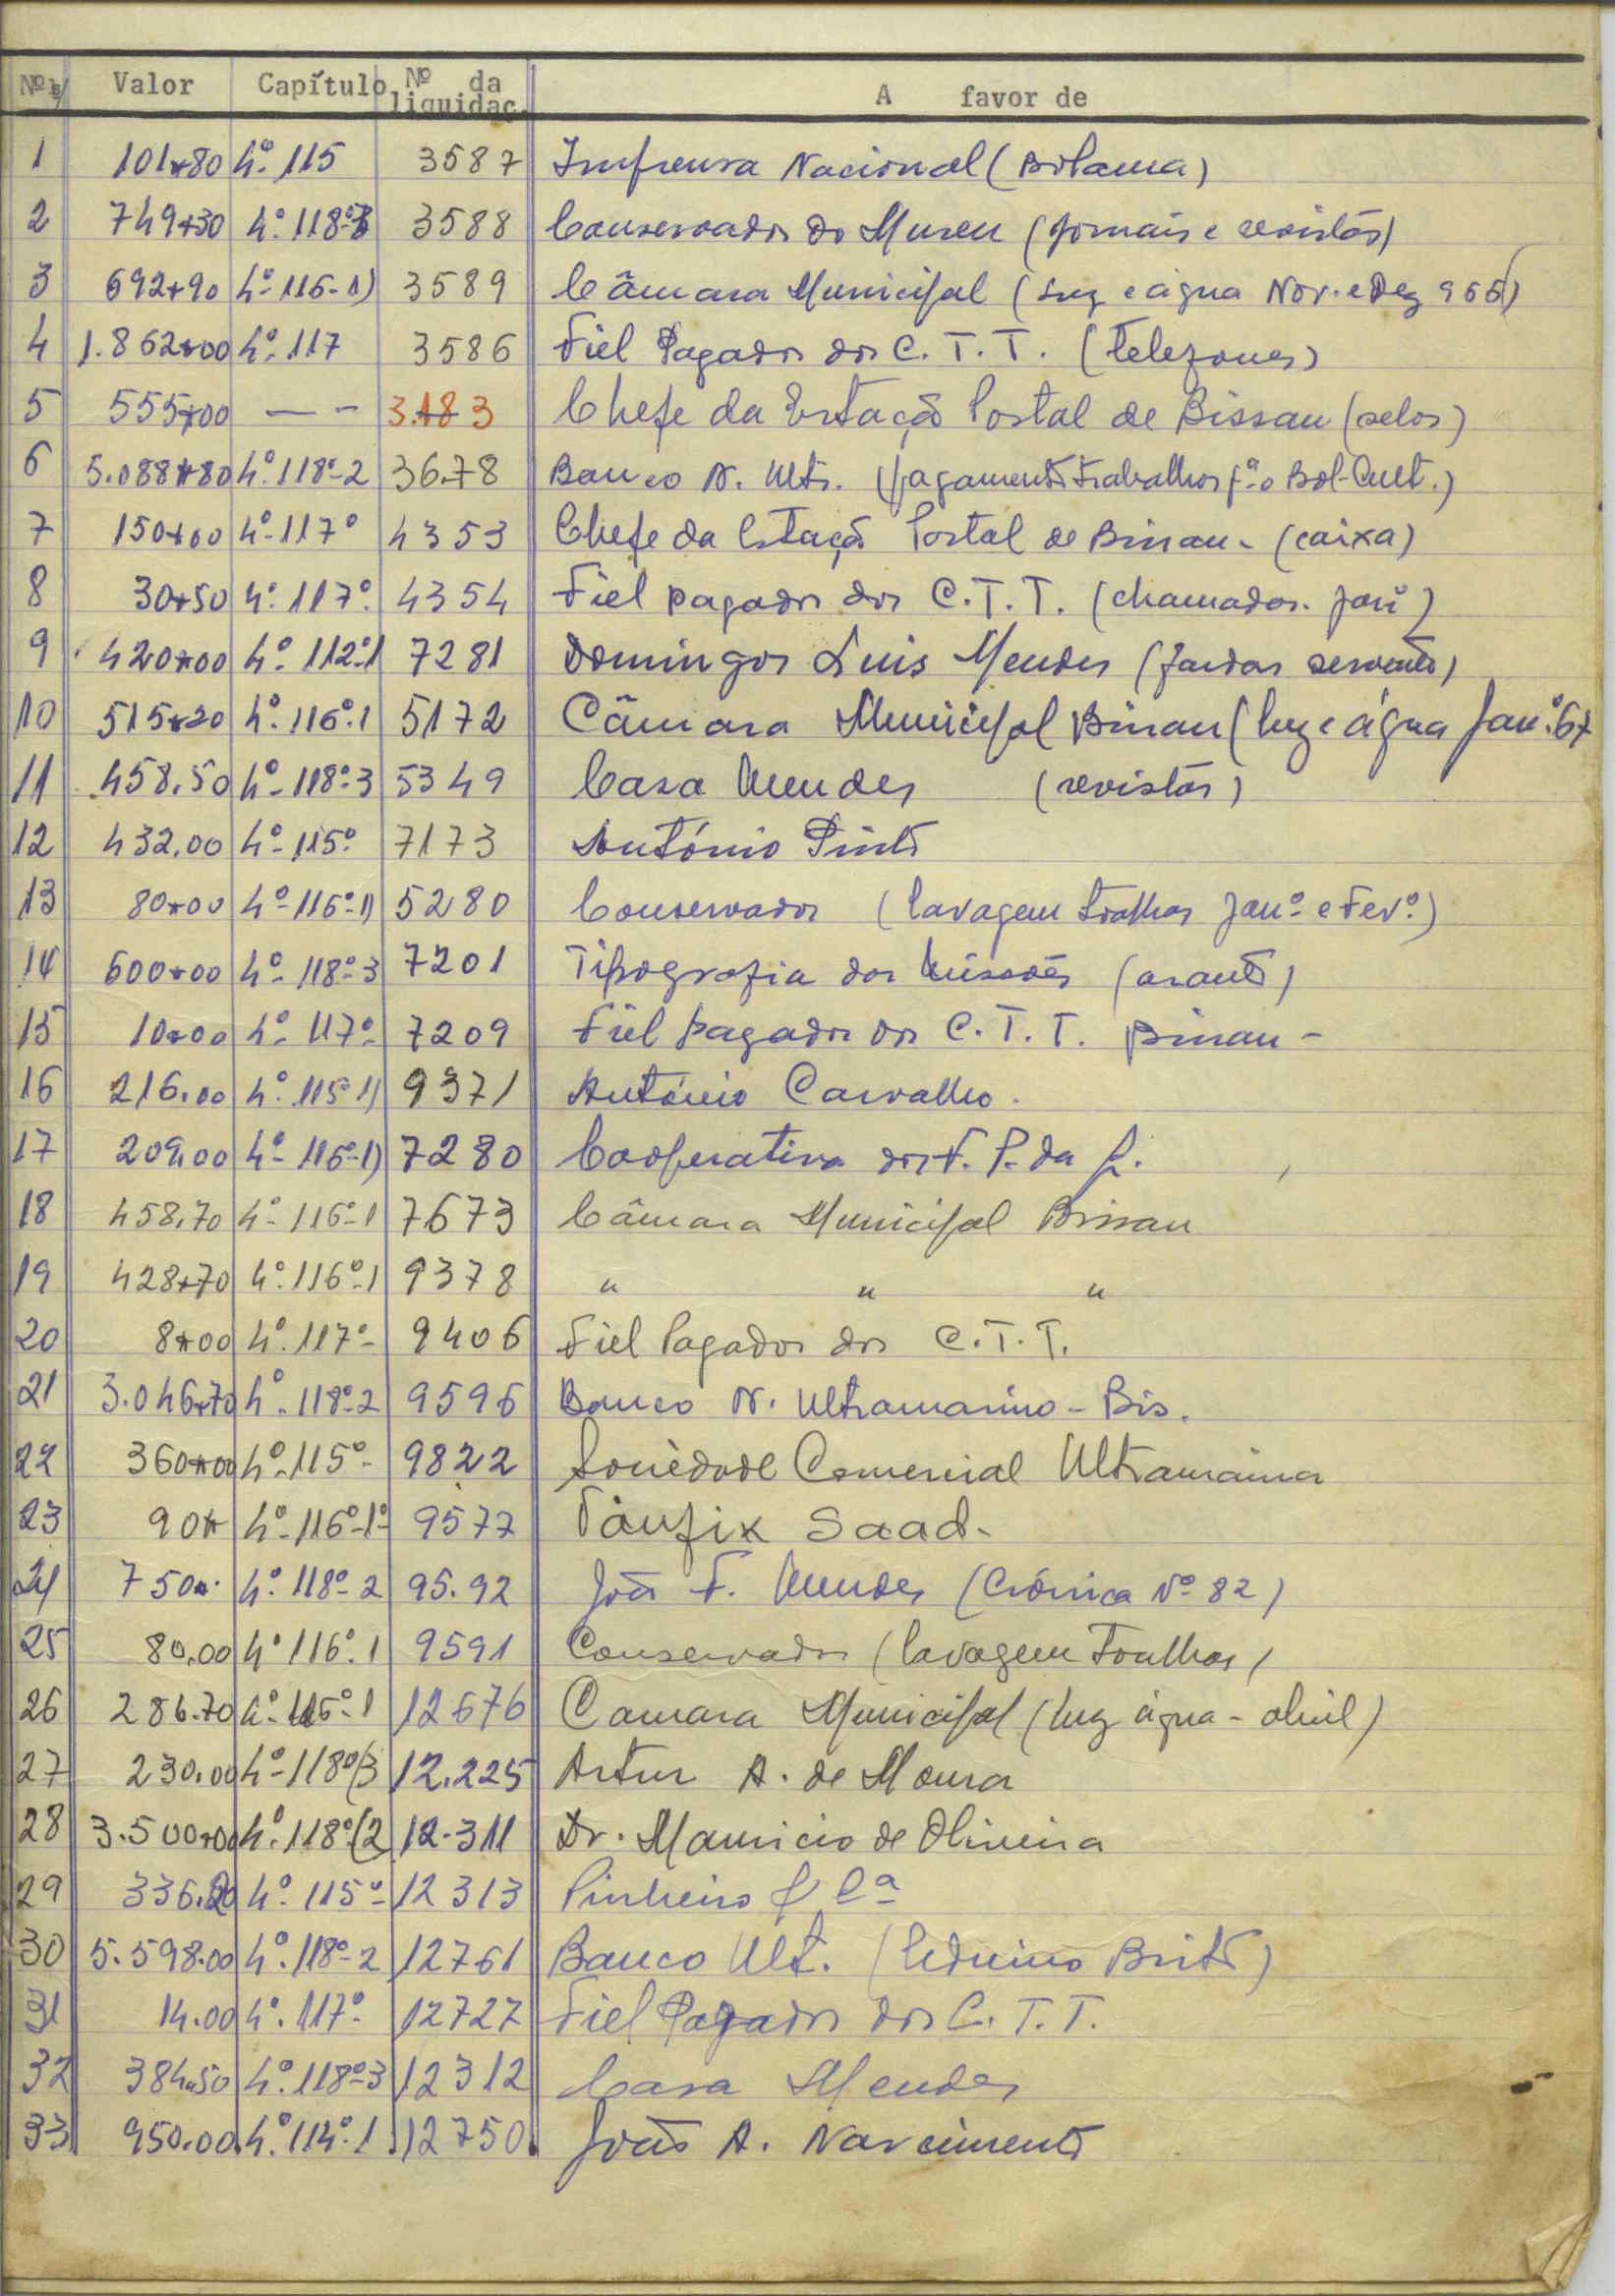 Nºs/ Valor Capítulo Nº da liquidaç. A favor de
1 101$80 4º.115 3587 Imprensa Nacional (Bolama)
2 749$30 4º.118º-3 3588 Conservador do Museu (jornais e revistas)
3 692$90 4º-116-1) 3589 Câmara Municipal (luz e água Nov. e Dez 966)
4 1.862$00 4º.117 3586 Fiel Pagador dos C.T.T. (telefones)
5 555$00 — - 3.183 Chefe da Estação Postal de Bissau (selos)
6 5.088$80 4º.118º-2 3678 Banco N. Ultr. (pagamento trabalhos pª o Bol-Cult.)
7 150$00 4º-117º 4353 Chefe da Estação Postal de Bissau - (caixa)
8 30$50 4º.117º. 4354 Fiel pagador dos C.T.T. (chamadas. janº)
9 420$00 4º.112º1 7281 Domingos Luis Mendes (fardas servente)
10 515$20 4º.116º.1 5172 Câmara Municipal Bissau (luz e água Janº.67
11 458.50 4º-118º-3 5349 Casa Mendes (revistas)
12 432.00 4º-115º 7173 António Pinto
13 80$00 4º-116º-1) 5280 Conservador (lavagem toalhas Janº e Fevº)
14 600$00 4º-118º-3 7201 Tipografia das Missões
15 10$00 4º-117º- 7209 Fiel pagador dos C.T.T. Bissau -
16 216.00 4º.115º1) 9371 António Carvalho.
17 209.00 4º-116º-1) 7280 Cooperativa dos F. P. da G.
18 458.70 4º-116º-1 7673 Câmara Municipal Bissau
19 428$70 4º.116º-1 9378 " " "
20 8$00 4º.117º- 9406 Fiel Pagador dos C.T.T.
21 3.046$70 4º.118º-2 9596 Banco N. Ultramarino - Bis.
22 360$00 4º-115º- 9822 Sociedade Comercial Ultramarina
23 90$ 4º-116º-1º- 9577 Taufik Saad-
24 750$. 4º.118º-2 95.92 João F. Mendes (Crónica Nº 82)
25 80.00 4º116º.1 9591 Conservador (lavagem Toalhas)
26 286.70 4º-116º-1 12676 Camara Municipal (luz água - abril)
27 230.00 4º-118º(3 12.225 Artur A. de Moura
28 3.500$00 4º.118º(2 12.311 Dr. Mauricio de Oliveira
29 336.20 4º.115º- 12313 Pinheiro & Cª
30 5.598.00 4º.118º-2 12761 Banco Ult. (Edmino Brito)
31 14.00 4º.117º- 12727 Fiel Pagador dos C.T.T.
32 384.50 4º.118º-3 12312 Casa Mendes
33 950.00 4º.114º.1 12750 João A. Nascimento